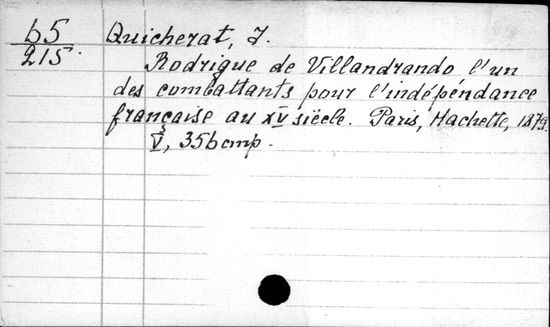 b5
215.
Quicherat, J.
Rodrigue de Villandrando l'un
des combattants pour l'indépéndance
française au XV siècle. Paris, Hachette, 1879.
V, 356 cmp.